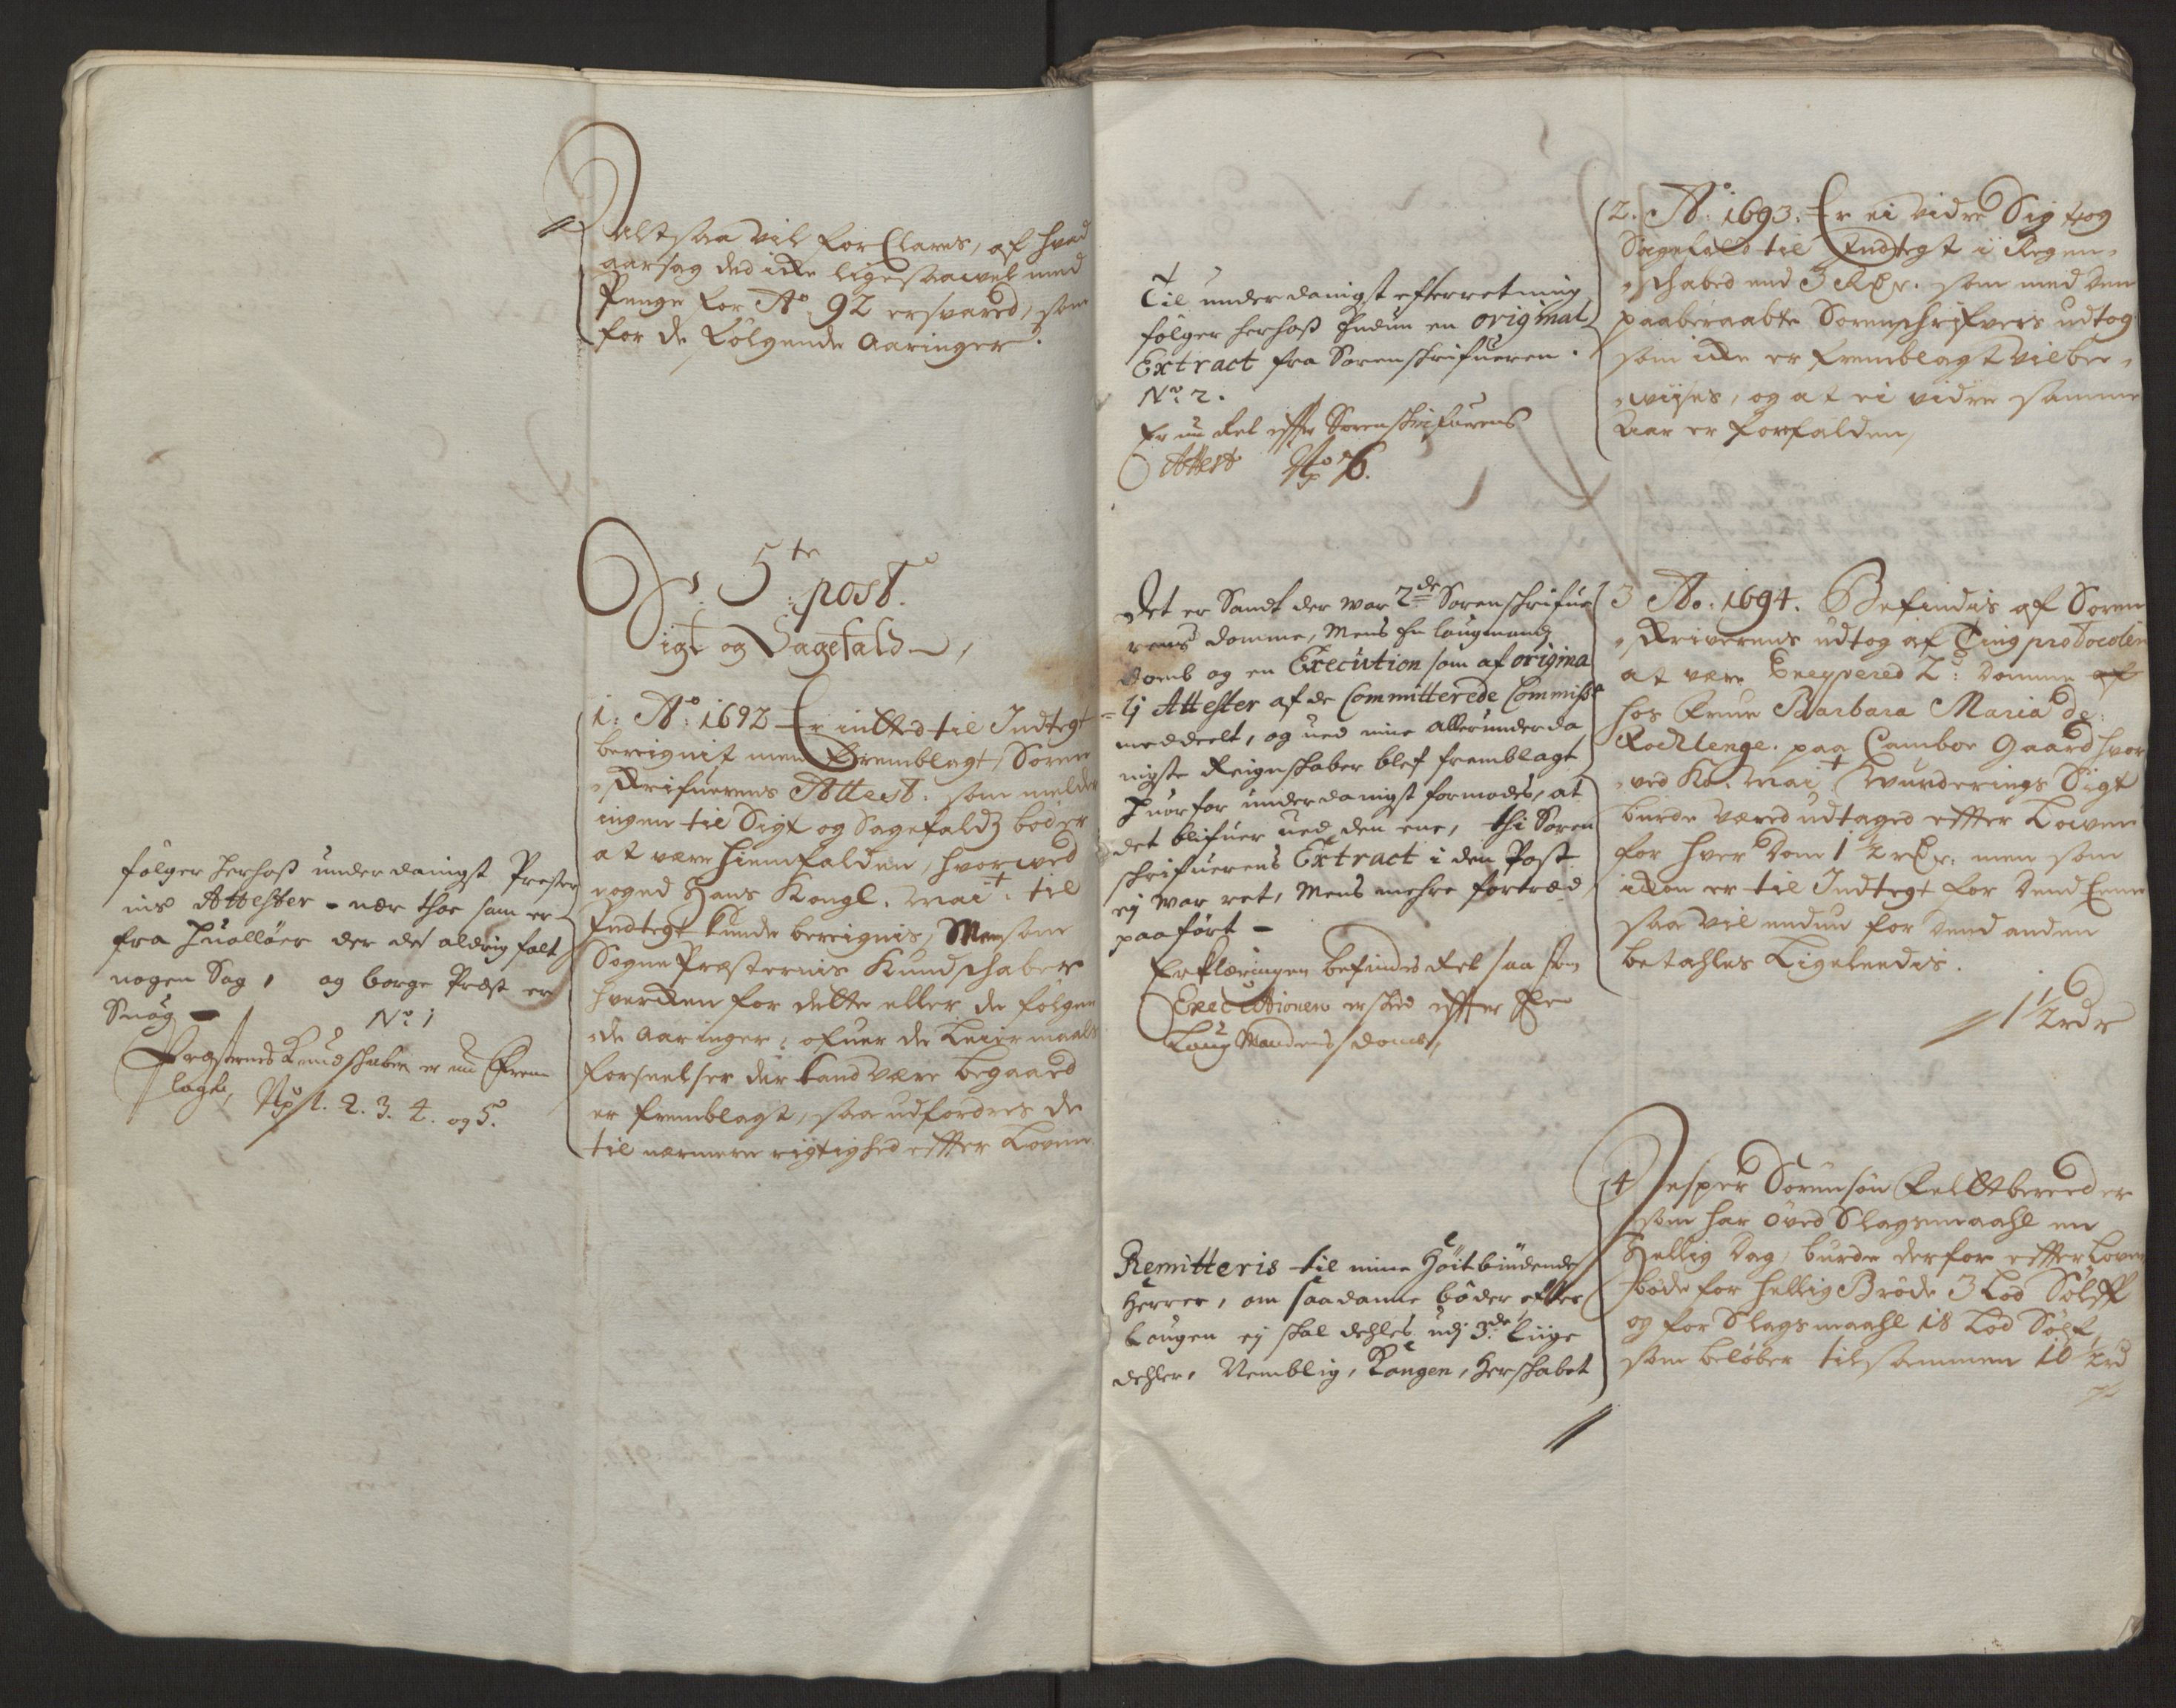 Altsaa vil for Clares, af hvad
aarsag ded icke ligesaavel med
Penge for Ao 92 ersvared, som
for de følgende Aaringer.
5te post.
Sigt og Sagefald,
1: Ao: 1692 Er inttet til Indtegt
bereignit men fremblagt, Soren¬
skrifuerens Attest. som melder
ingen til Sigt og Sagefalds bøder
at være hiemfalden, hvorved
noged Hans Kongl. Mait: til
Indtegt kunde bereignis, Men som
Sogne Præsternis Kundschaber
hvercken for dette eller de følgen
de Aaringer, ofuer de Leiermaals
forseelser der kand være begaaed
er fremblagt, saa udfordres de
til nærmere rigtighed effter Loven
følger herhoß underdanigst Præster
nis Attester - nær thoe som er
fra Hualløer der det aldrig falt
nogen Sag, og borge Præst er
Siug -
No: 1
Præsternes Kundschaber er nu frem
lagt, No 1. 2. 3. 4. og 5.
Til underdanigst efterretning
følger herhoß endun en original
Extract fra Sorenskrifueren.
No: 2.
Er nu det effter Sorenskrifuerens
Attest No 6.
Det er Sandt der war 2de Sorenskrifue
rens domme, Mens En laugmands
domb og en Execution som af origina
lj Attester af de Committerede Commiss:
meddeelt, og ved mine allerunderda
nigste Reignskaber blef fremblagt
Huorfor underdanigst formodes, at
det blifuer ved den ene, thi Soren
schrifuerens Extract i den Post
ej war ret, Mens mehre fortræd
paaført -
Erklæringen befindes ret saa som
Executionen er skeed effter En
Laug Mandens domb,
Remitteris til mine Høitbiudende
Herrer, om saadanne bøder efter
Laugen ej skal dehles udj 3de liige
dehler, Nemblig, Kongen, Herskabet
2. Ao: 1693. Er ei vidre Sigt og
Sagefald til Indtegt i Regen¬
schabed end 3 Rdr. som med den
paaberaabte Sorenschrifvers udtog
som icke er fremblagt vil bee¬
wiises, og at ei vidre samme
Aar er forfalden,
3 Ao. 1694. Befindis af Soren
skriverens udtog af Ting protocolen
at være Exeqvered 2: domme af
hos Frue Barbara Maria de:
Rocklenge. paa Cambor Gaard hvor
ved Ko. Mait Wurderings Sigt
burde væred udtaged effter Loven
for hver dom 1 ½ rdr. men som
ickon er til Indtegt for dend Eene
saa vil endnu for dend anden
betahles Ligeleedis.
1 ½ rdr
4 Jesper Sørensøn Felltbereeder
som har øved Slagsmaahl en
Hellig dag, burde derfor effter Loven
bøde for hellig Brøde 3 Lod Sølff
og for Slagsmaahl 18 Lod Sølf,
som beløber tilsammen 10 ½ rd